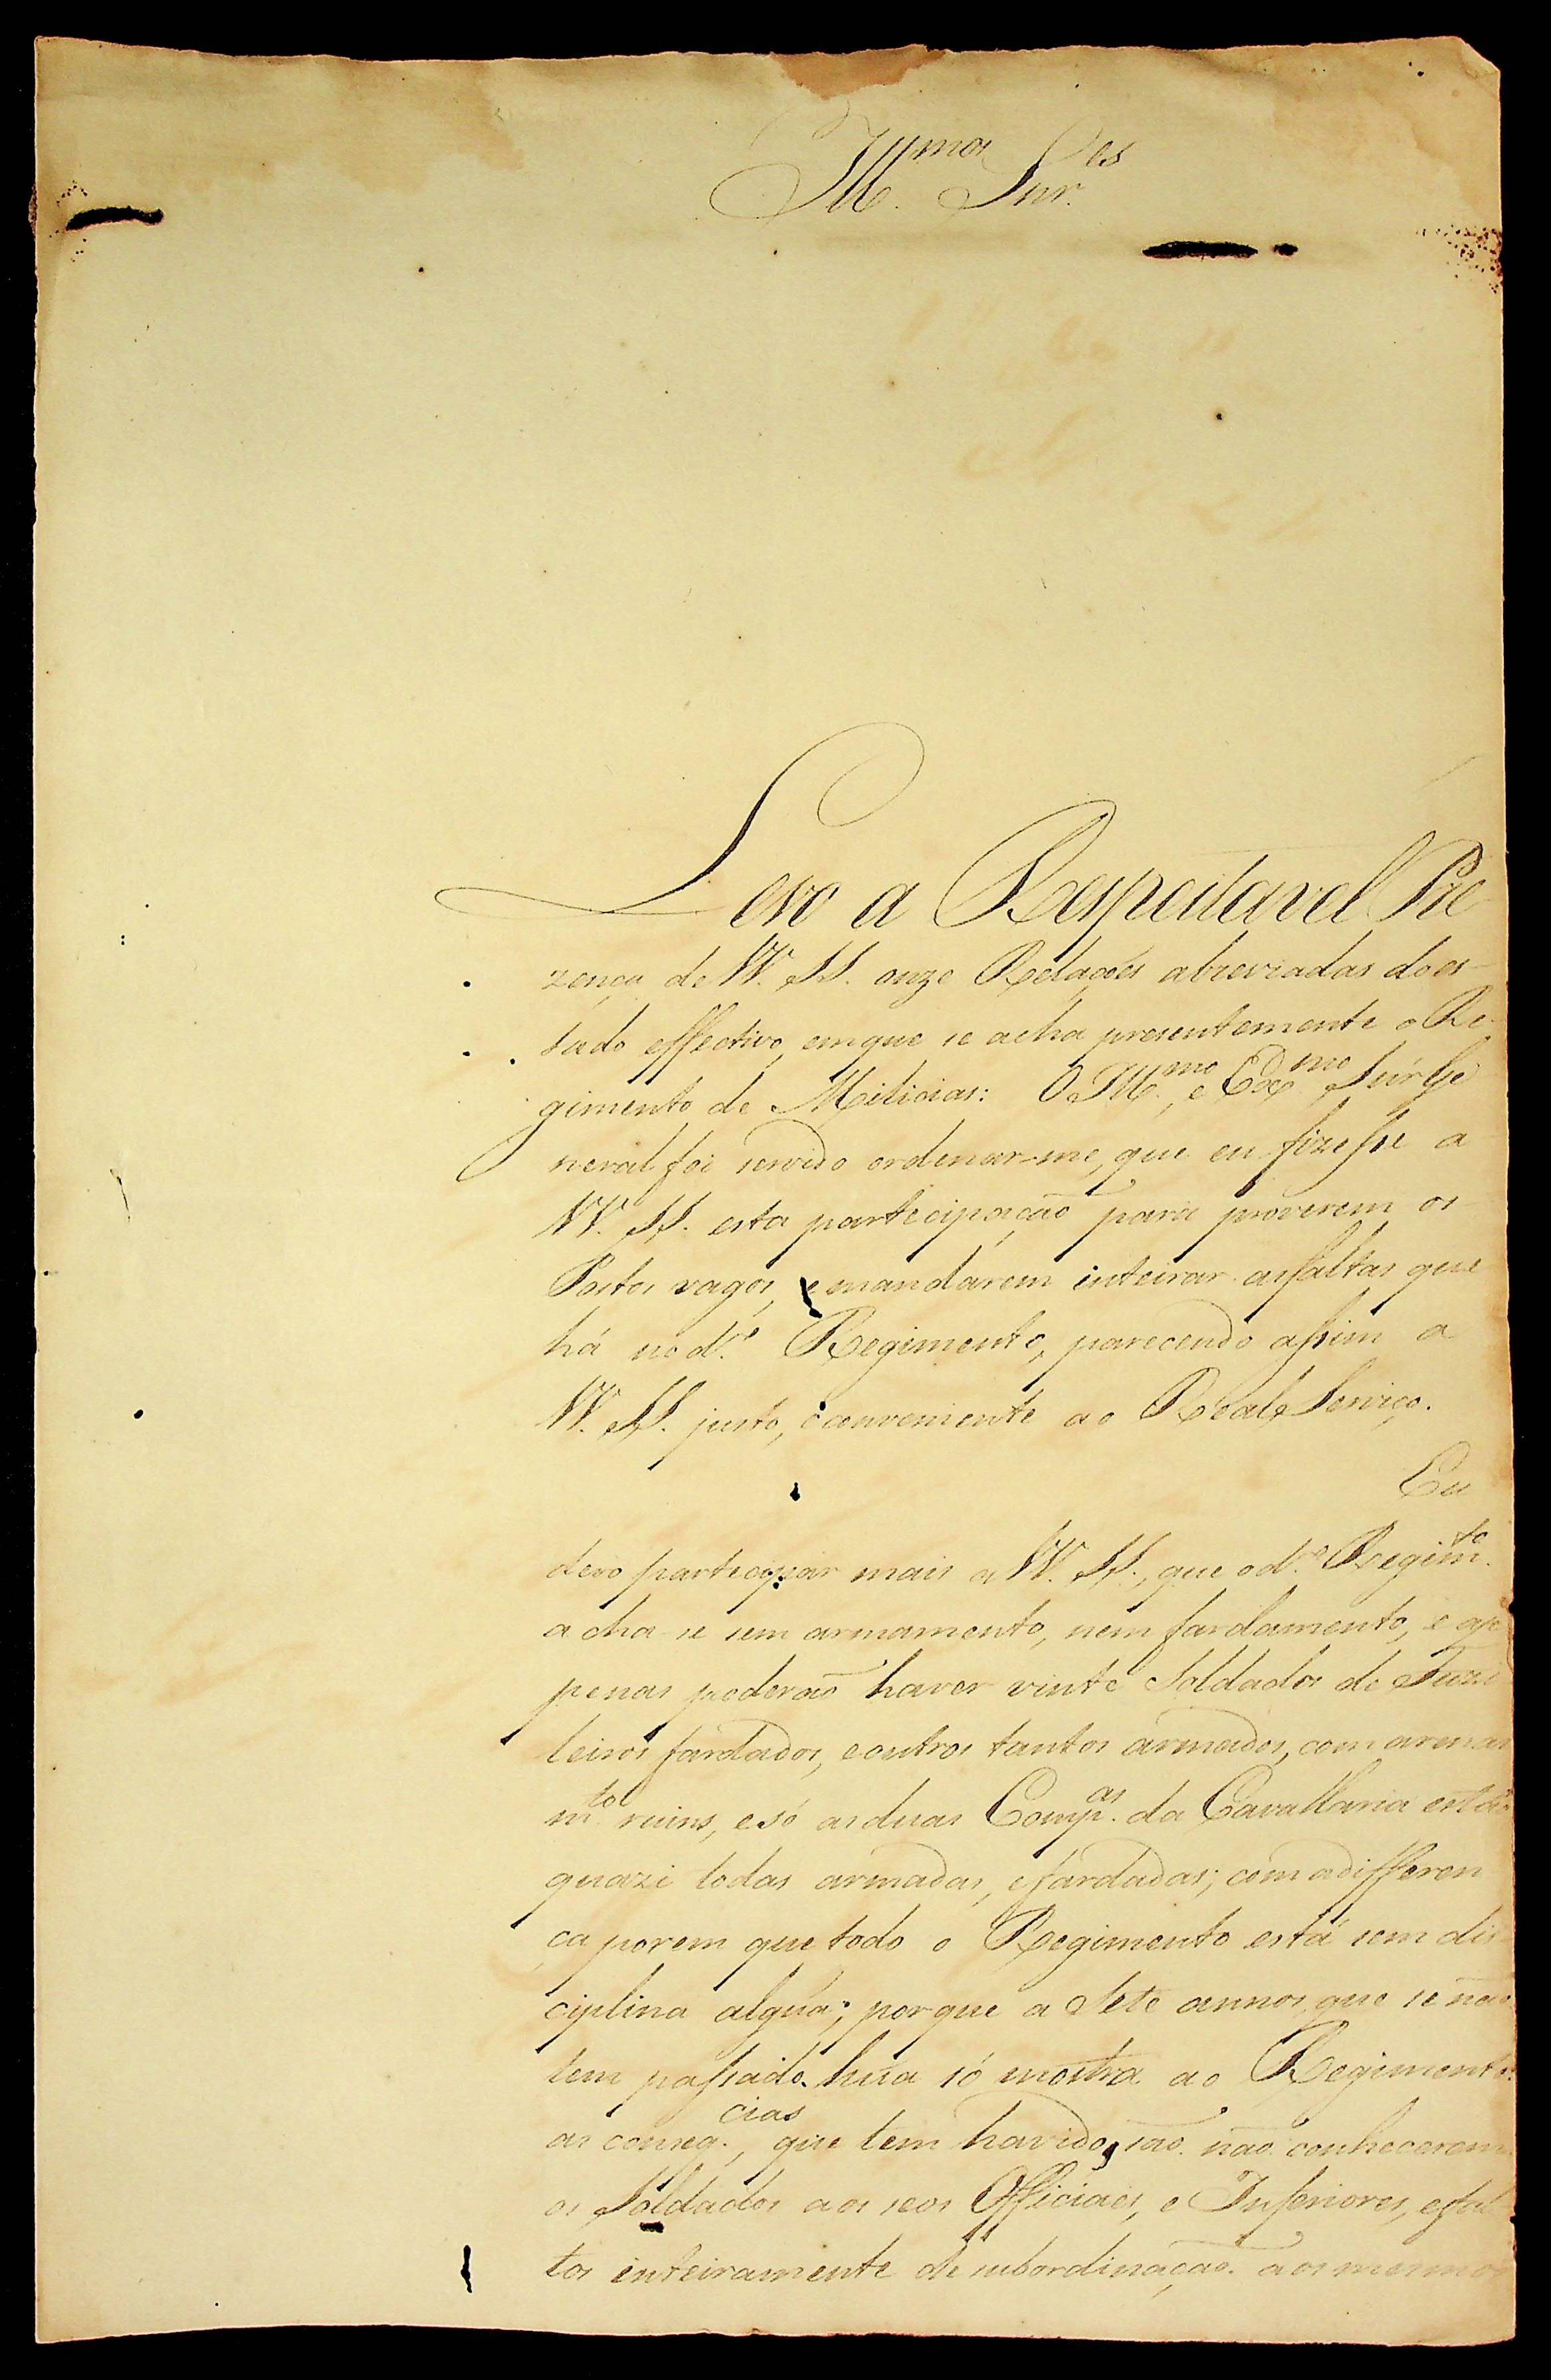 Ill.mos Snr.es
Levo a Respeitavel Pre
zença de VV. SS. onze Relações abreviadas do es-
tado effectivo, em que se acha presentemente o Re-
gimento de Milicias: O Ill.mo, e Ex.mo Snr Ge
neral foi servido ordenar-me, que eu fizesse a
VV. SS. esta partecipação para proverem os
Postos vagos, e mandarem inteirar as faltas que
há no d.º Regimento, parecendo assim a
VV. SS. justo, e conveniente ao Real Serviço.
Eu
devo participar mais a VV. SS., que o d.º Regim.to
acha-se sem armamento, nem fardamento, e ape
penas poderaõ haver vinte Soldados de Fuzi
leiros fardados, e outros tantos armados, com armar
m.tos ruins, e só as duas Comp.as da Cavallaria estaõ
quazi todas armadas, e fardadas; com a differen
ça porem que todo o Regimento está sem dis
ciplina algũa; porque a Sete annos que se naõ
tem passado hũa só mostra ao Regimento:
as conseq.cias, que tem havido, saõ naõ conhecerem
os Soldados aos seos Officiaes, e Inferiores, e fal
tos inteiramente de subordinaçaõ aos mesmos